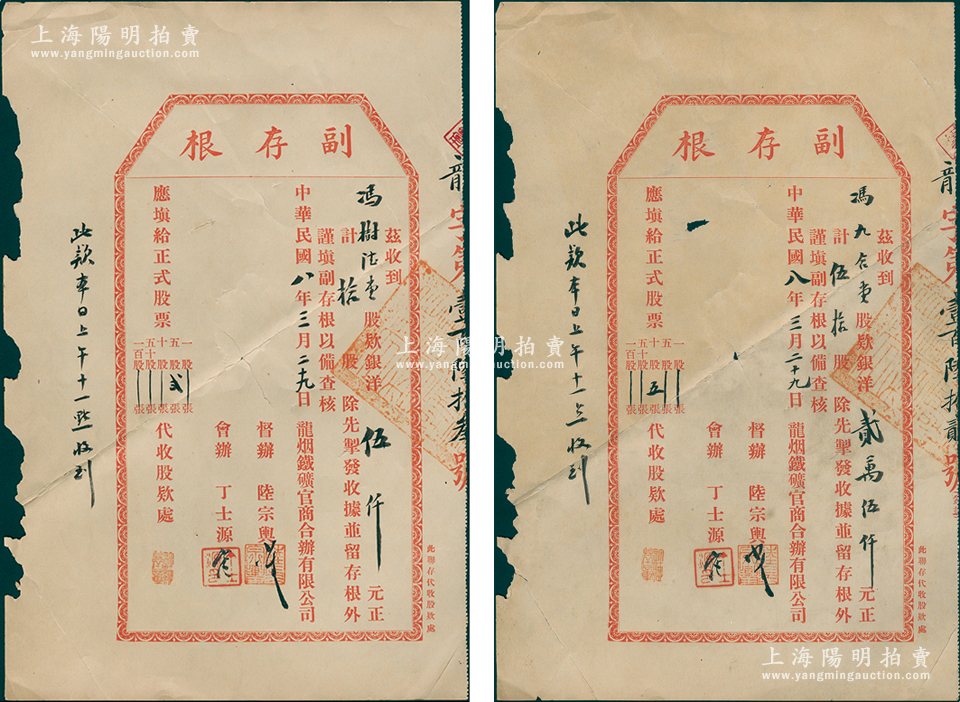 上海陽明拍賣
www.yangmingauction.com
副存根
茲收到
馮樹德堂股欵銀洋伍仟元正
計拾股除先掣發收據並留存根外
謹填副存根以備查核
中華民國八年三月二十九日
龍烟鐵礦官商合辦有限公司
督辦陸宗輿
會辦丁士源
應填給正式股票
一股張
五股弍張
十股張
五十股張
一百股張
代收股欵處
此款本日上午十一點收到
龍字第壹百陸拾叁號
此聯存代收股欵處
上海陽明拍賣
www.yangmingauction.com
副存根
茲收到
馮九合堂股欵銀洋貳萬伍仟元正
計伍拾股除先掣發收據並留存根外
謹填副存根以備查核
中華民國八年三月二十九日
龍烟鐵礦官商合辦有限公司
督辦陸宗輿
會辦丁士源
應填給正式股票
一股張
五股張
十股五張
五十股張
一百股張
代收股欵處
此款本日上午十一点收到
龍字第壹百陸拾貳號
此聯存代收股欵處
上海陽明拍賣
www.yangmingauction.com
上海陽明拍賣
www.yangmingauction.com